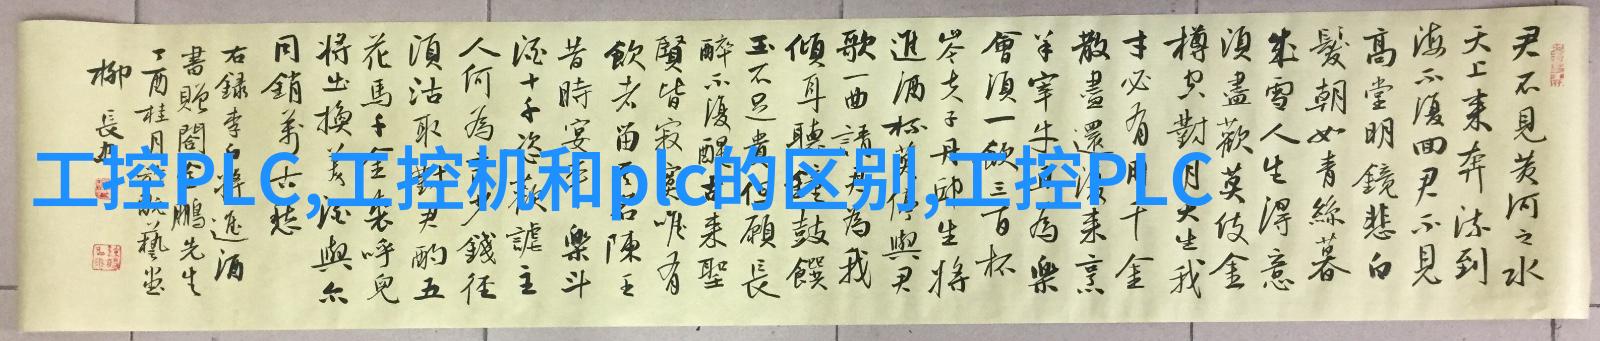 君不見黄河之水
天上來奔流到
海不復回君不見
高堂明鏡悲白
髮朝如青絲暮
成雪人生得意
須盡歡莫使金
樽空對月天生我
才必有用千金
散盡還復來烹
羊宰牛且為樂
會須一飲三百杯
岑夫子丹邱生將
進酒杯莫停與君
歌一曲請君為我
傾耳聽鐘鼓饌
玉不足貴但願長
醉不復醒古來聖
賢皆寂寞唯有
飲者留其名陳王
昔時宴平樂斗
酒十千恣歡謔主
人何為言少錢徑
須沽取對君酌五
花馬千金裘呼兒
將出換美酒與尒
同銷萬古愁
右録李白將進酒
書贈閣金鵬先生
丁酉桂月藝堂
柳長
工控PLC,工控机和plc的区别,工控PLC